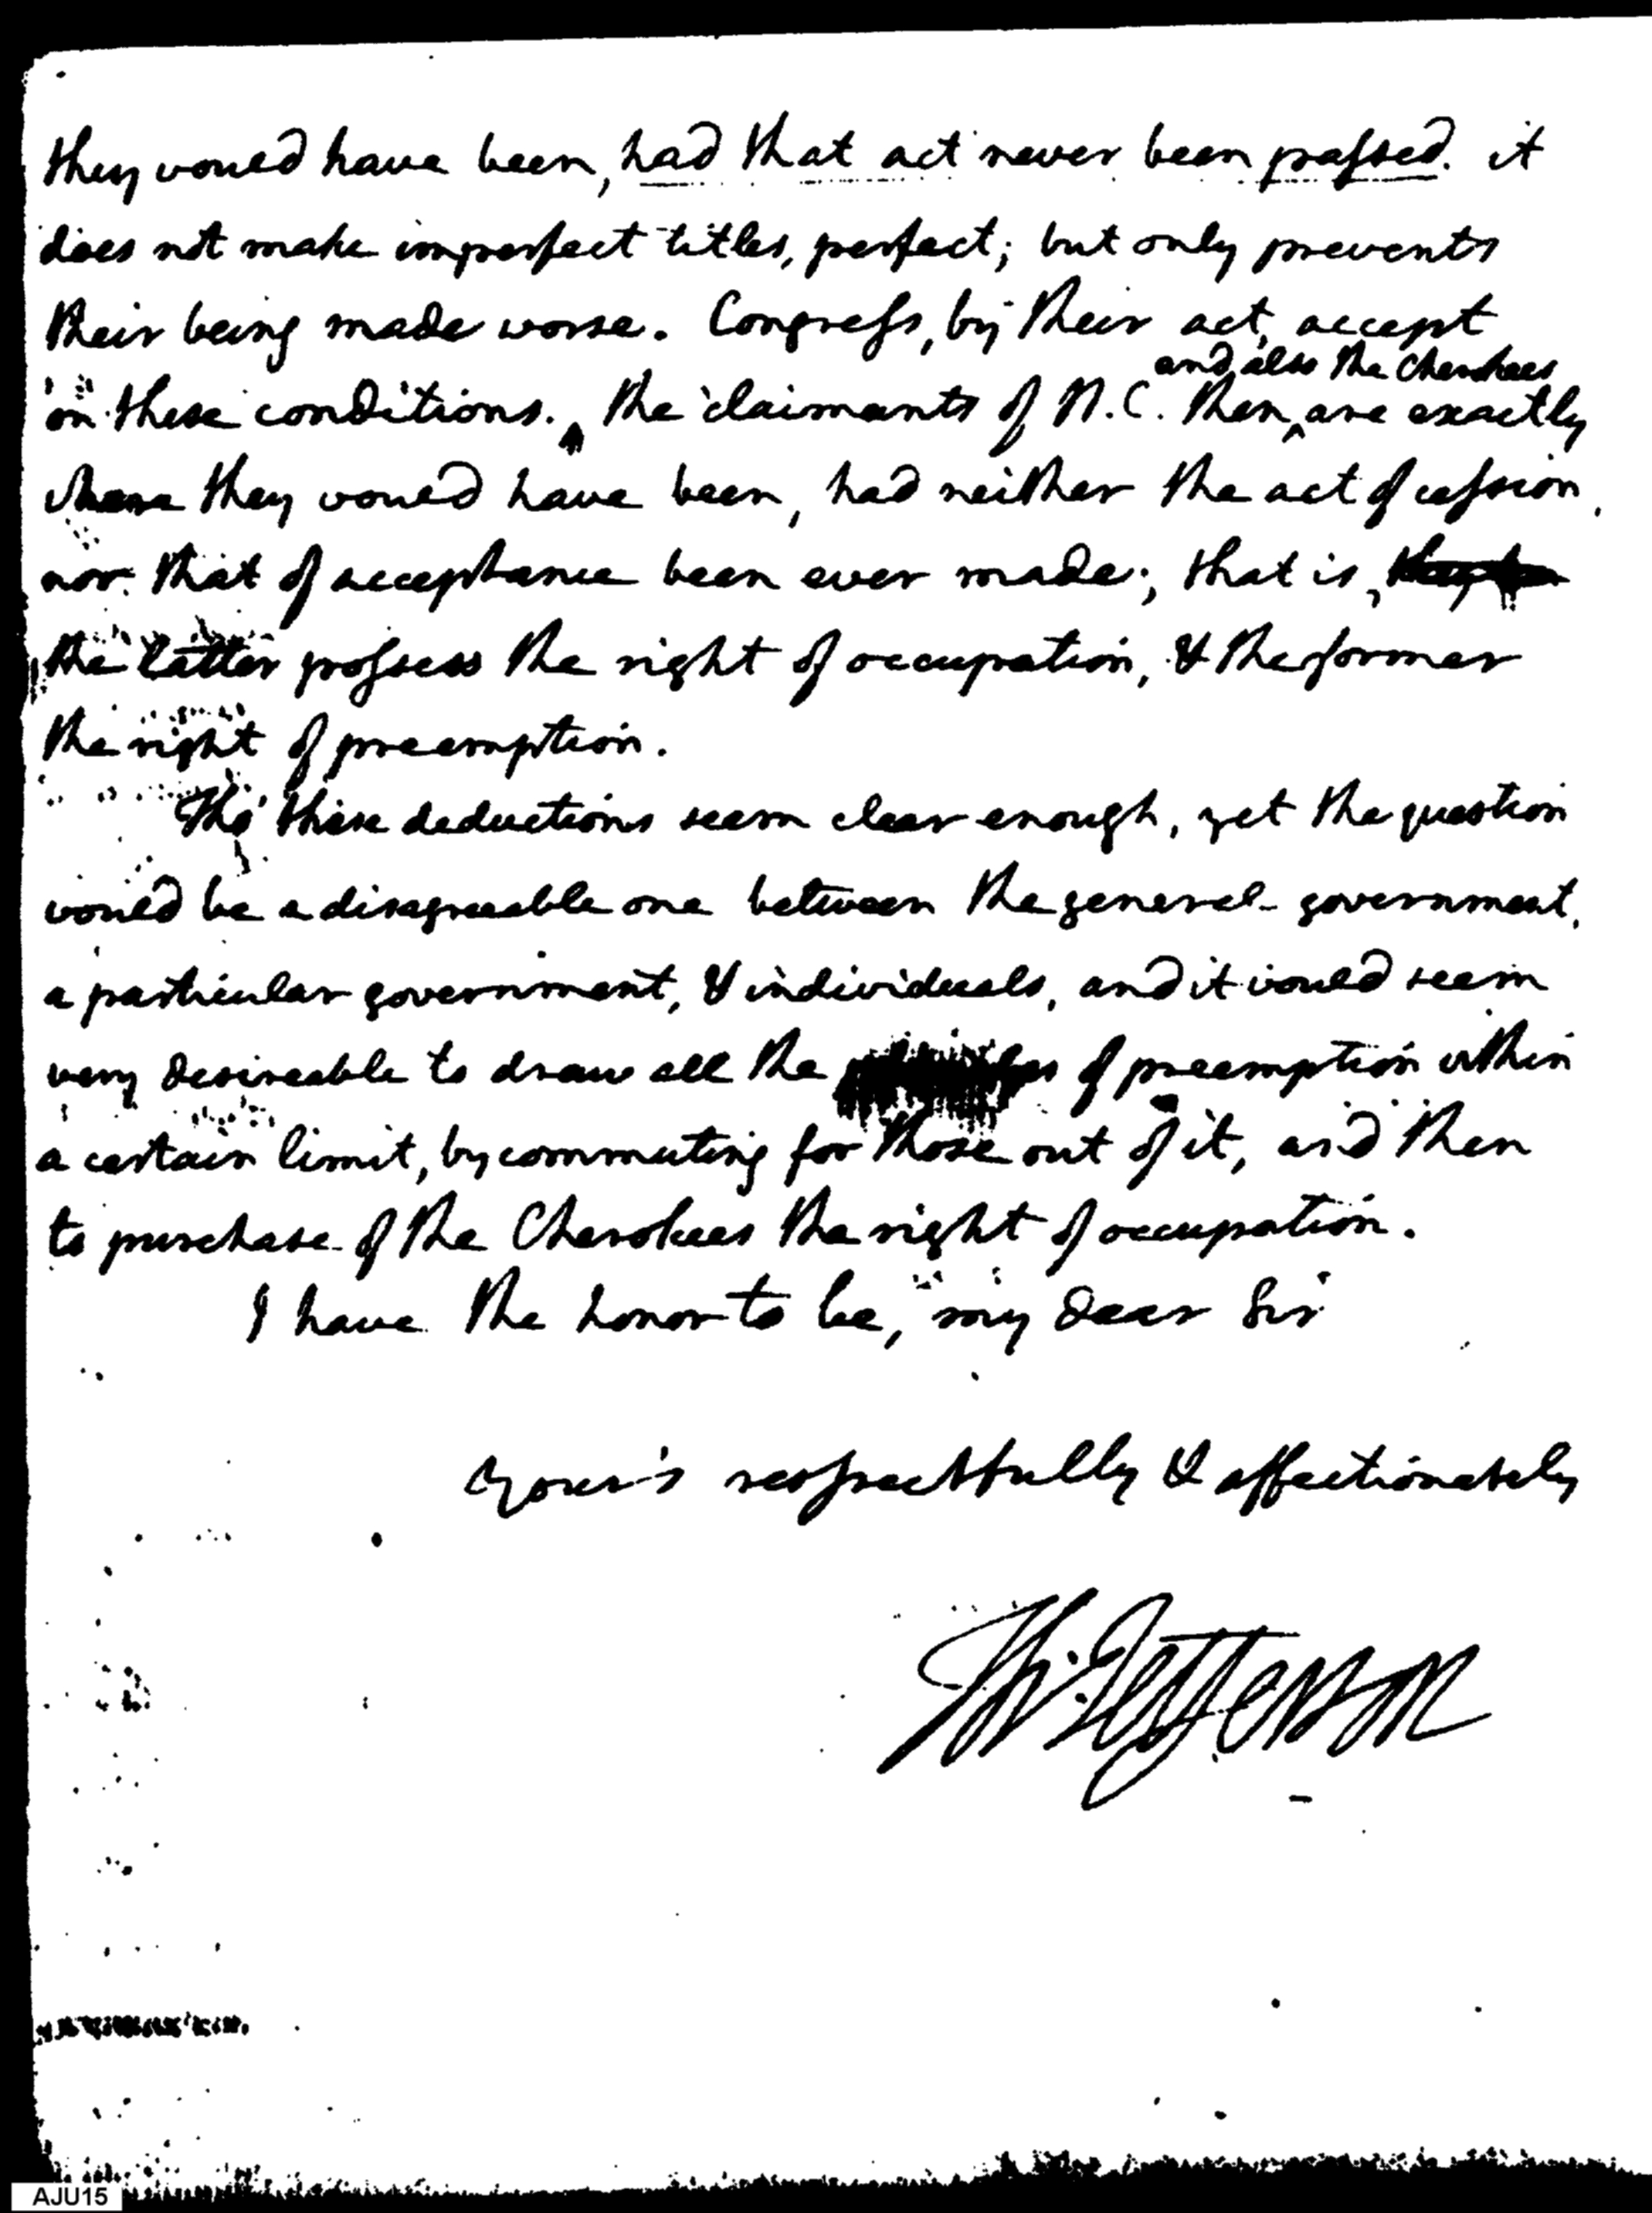 they would have been, had that act never been passed. it
does not make imperfect titles, perfect; but only prevents
their being made worse. Congress, by their act, accept
and also the Cherokees
on these conditions. the claimants of N.C. then, are exactly
where they would have been, had neither the act of cession
nor that of acceptance been ever made; that is,
the latter possess the right of occupation, & the former
the right of preemption.
Tho' these deductions seem clear enough, yet the question
would be a disagreeable one between the general government,
a particular government, & individuals, and it would seem
very desireable to draw all the of preemption within
a certain limit, by commuting for those out of it, and then
to purchase of the Cherokees the right of occupation.
I have the honor to be, my dear Sir
Your's respectfully & affectionately
Th: Jefferson
AJU15